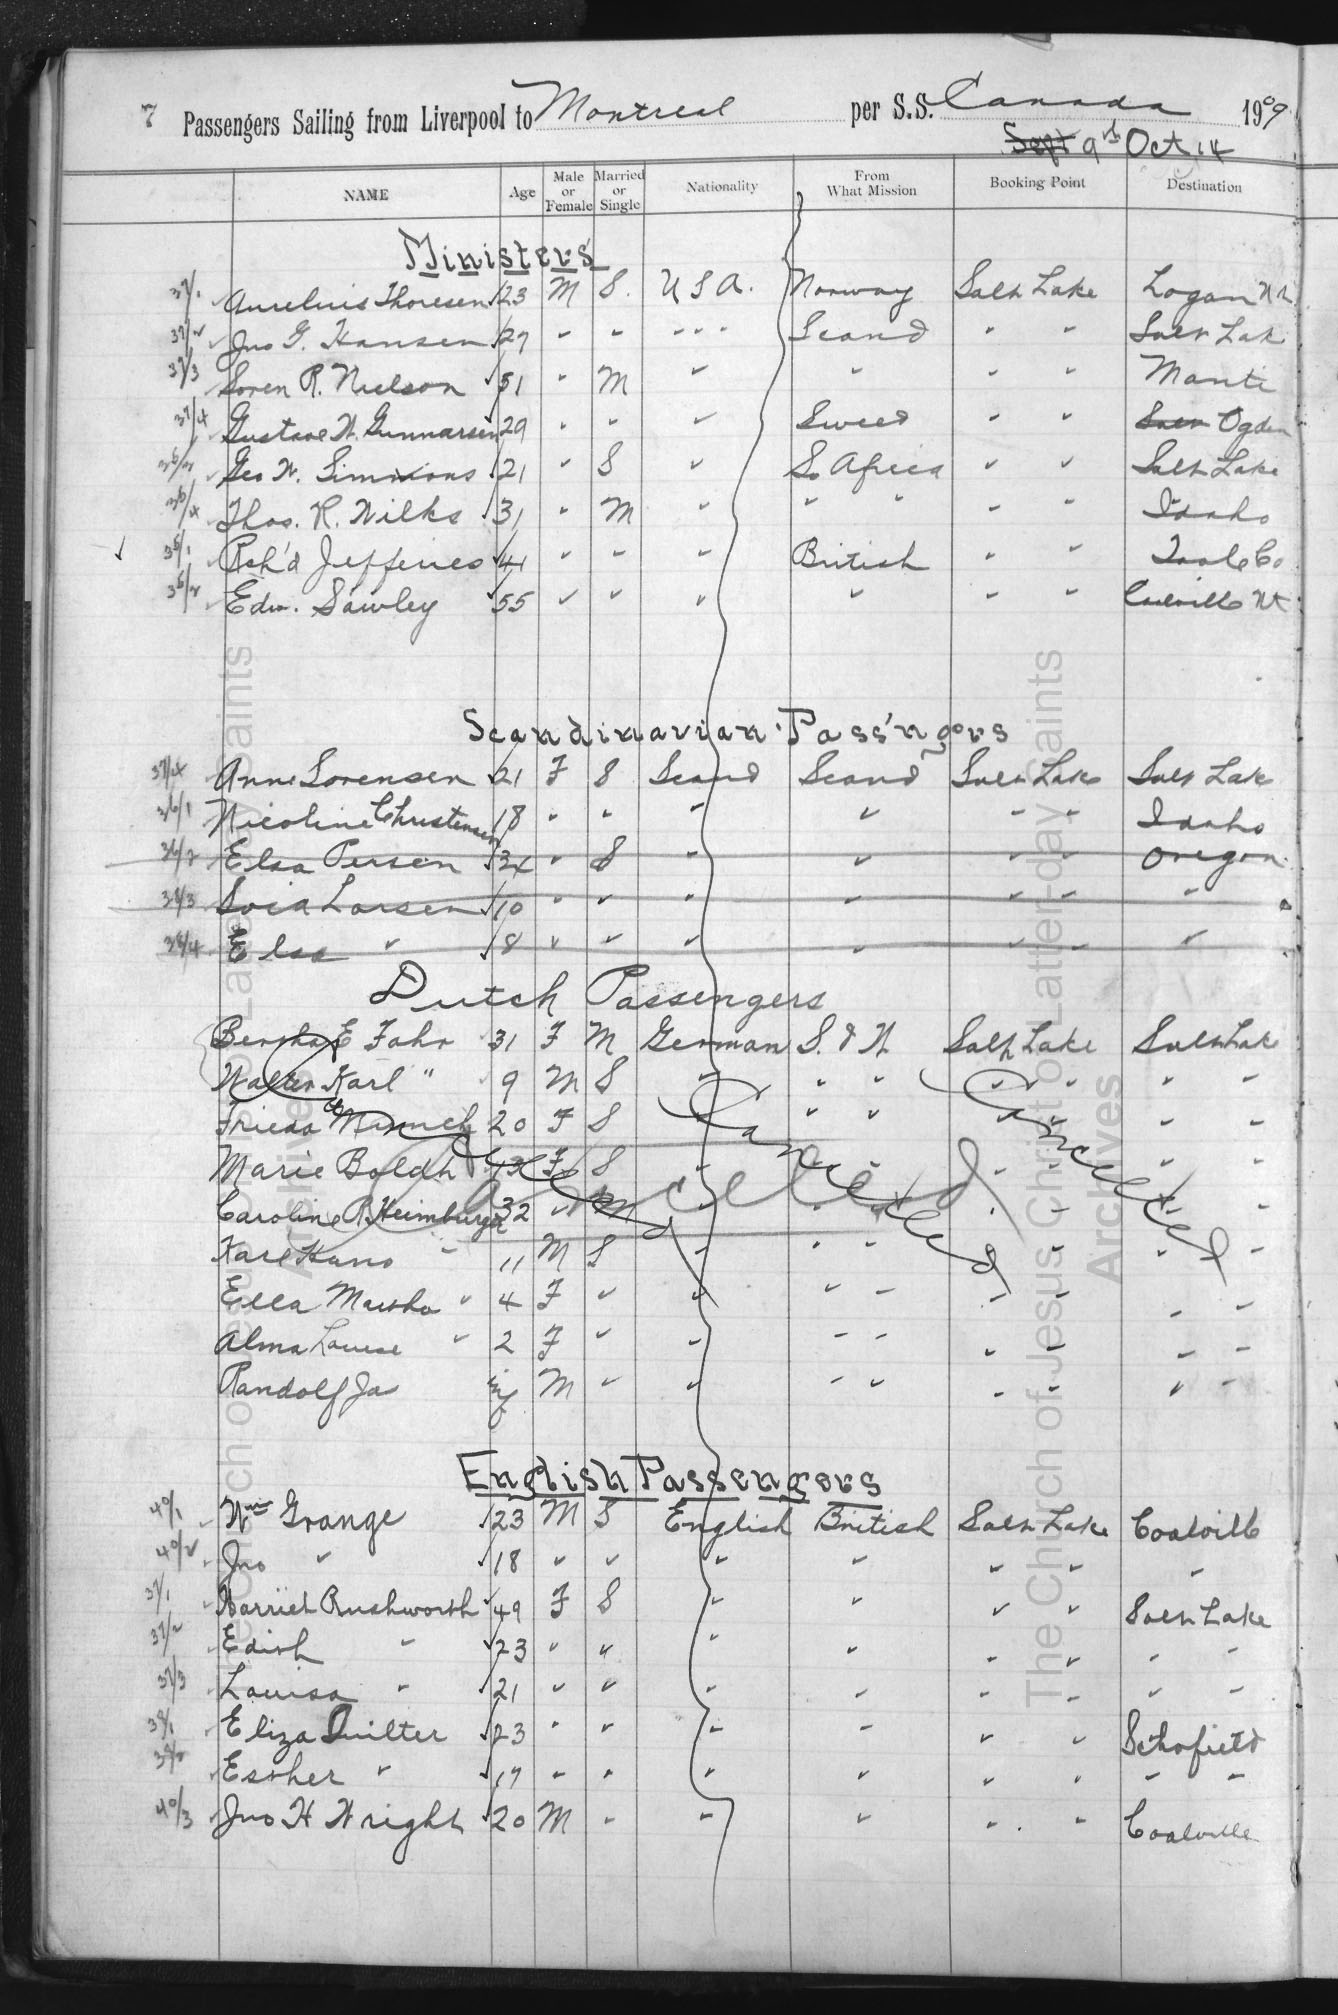 7 Passengers Sailing from Liverpool to Montreal per S.S. Canada 1909
Sept 9th Oct 14
NAME Age Male or Female Married or Single Nationality From What Mission Booking Point Destination
Ministers
37/1 Aurelius Thoresen 23 M S. U S A. Norway Salt Lake Logan Ut
37/2 Jno G. Hansen 27 " " " " " Scand " " Salt Lak
37/3 Soren P. Nielson 51 " M " " " " Manti
37/4 Gustave W. Gunnarsen 29 " " " Swed " " Salt Ogden
Geo W. Simmons 21 " S " So Africa " " Salt Lake
Thos. R. Wilks 31 " M " " " " " Idaho
35/1 Rch'd Jefferies 41 " " " British " " Tooele Co
35/2 Edw. Sawley 55 " " " " " " Coalville Ut
Scandinavian Pass'ngers
37/4 Anne Sorensen 21 F S Scand Scand Salt Lake Salt Lake
36/1 Nicoline Christensen 18 " " " " " " Idaho
Elsa Persen 34 " S " " " " Oregon
Larsen 10 " " " " " " "
38/4 Elsa " 8 " " " " " " "
Dutch Passengers
Bertha E Fahr 31 F M German S. & N Salt Lake Salt Lake
Walter Karl " 9 M S " " " " " " "
Frieda 20 F S " " " " " " "
Marie Boldt F S " " " " " "
Caroline P. Heimburger 32 " M " " " " " "
Karl Hans " 11 M S " " " " " "
Ella Martha " 4 F " " " " " " " "
Alma Louise " 2 F " " " " " " " "
Randolf Ja Inf M " " " " " " " "
Cancelled Cancelled Cancelled Cancelled
English Passengers
40/1 Wm Grange 23 M S English British Salt Lake Coalville
40/2 Jno " 18 " " " " " " "
37/1 Harriet Rushworth 49 F S " " " " Salt Lake
37/2 Edith " 23 " " " " " " " "
37/3 Louisa " 21 " " " " " " " "
38/1 Eliza Quilter 23 " " " " " " Schofield
38/2 Esther " 17 " " " " " " " "
40/3 Jno H Wright 20 M " " " " " Coalville
The Church of Jesus Christ of Latter-day Saints
Archives
The Church of Jesus Christ of Latter-day Saints
Archives